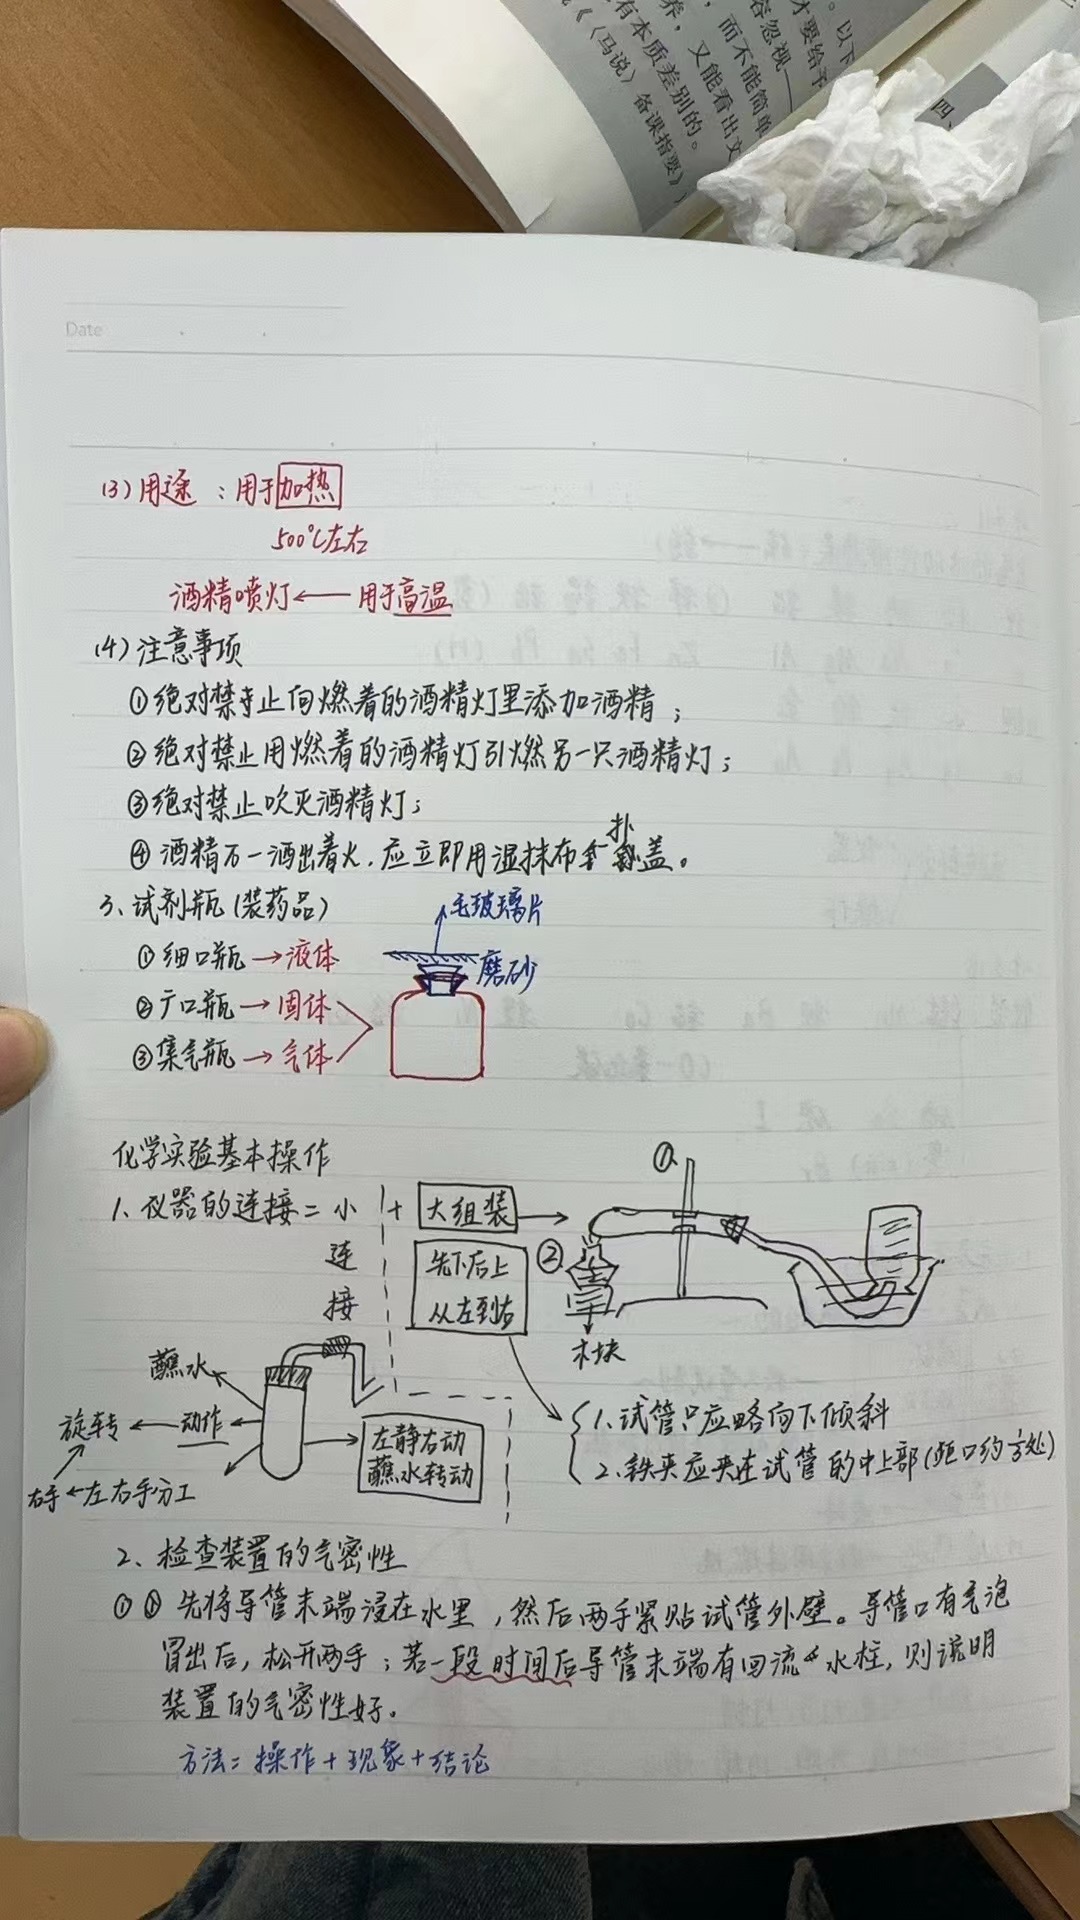 。以下
才要给予
容忽视——
，而不能简单
养，又能看出文
有本质差别的。
《《马说》备课指要》
四、
Date
(3)用途：用于加热
500℃左右
酒精喷灯←用于高温
(4)注意事项
①绝对禁止向燃着的酒精灯里添加酒精；
②绝对禁止用燃着的酒精灯引燃另一只酒精灯；
③绝对禁止吹灭酒精灯；
④酒精万一洒出着火，应立即用湿抹布扑盖。
3、试剂瓶(装药品)
毛玻璃片
①细口瓶→液体
磨砂
②广口瓶→固体
③集气瓶→气体
化学实验基本操作
1、仪器的连接=小连接+大组装→
①
②
先下后上
从左到右
木块
蘸水
旋转←动作
右手←左右手分工
左静右动
蘸水转动
1.试管口应略向下倾斜
2.铁夹应夹在试管的中上部(距口约⅓处)
2、检查装置的气密性
①①先将导管末端浸在水里，然后两手紧贴试管外壁。导管口有气泡
冒出后，松开两手；若一段时间后导管末端有回流水柱，则说明
装置的气密性好。
方法=操作+现象+结论